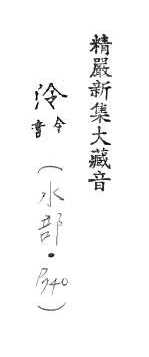 精嚴新集大藏音
泠令音（水部•P40）